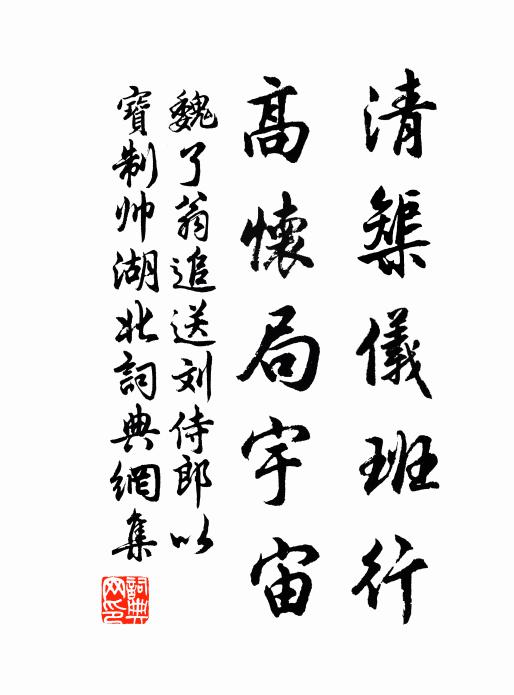 清榘儀班行
高懷局宇宙
魏了翁追送刘侍郎以
寶制帅湖北詞典網集
詞典网印